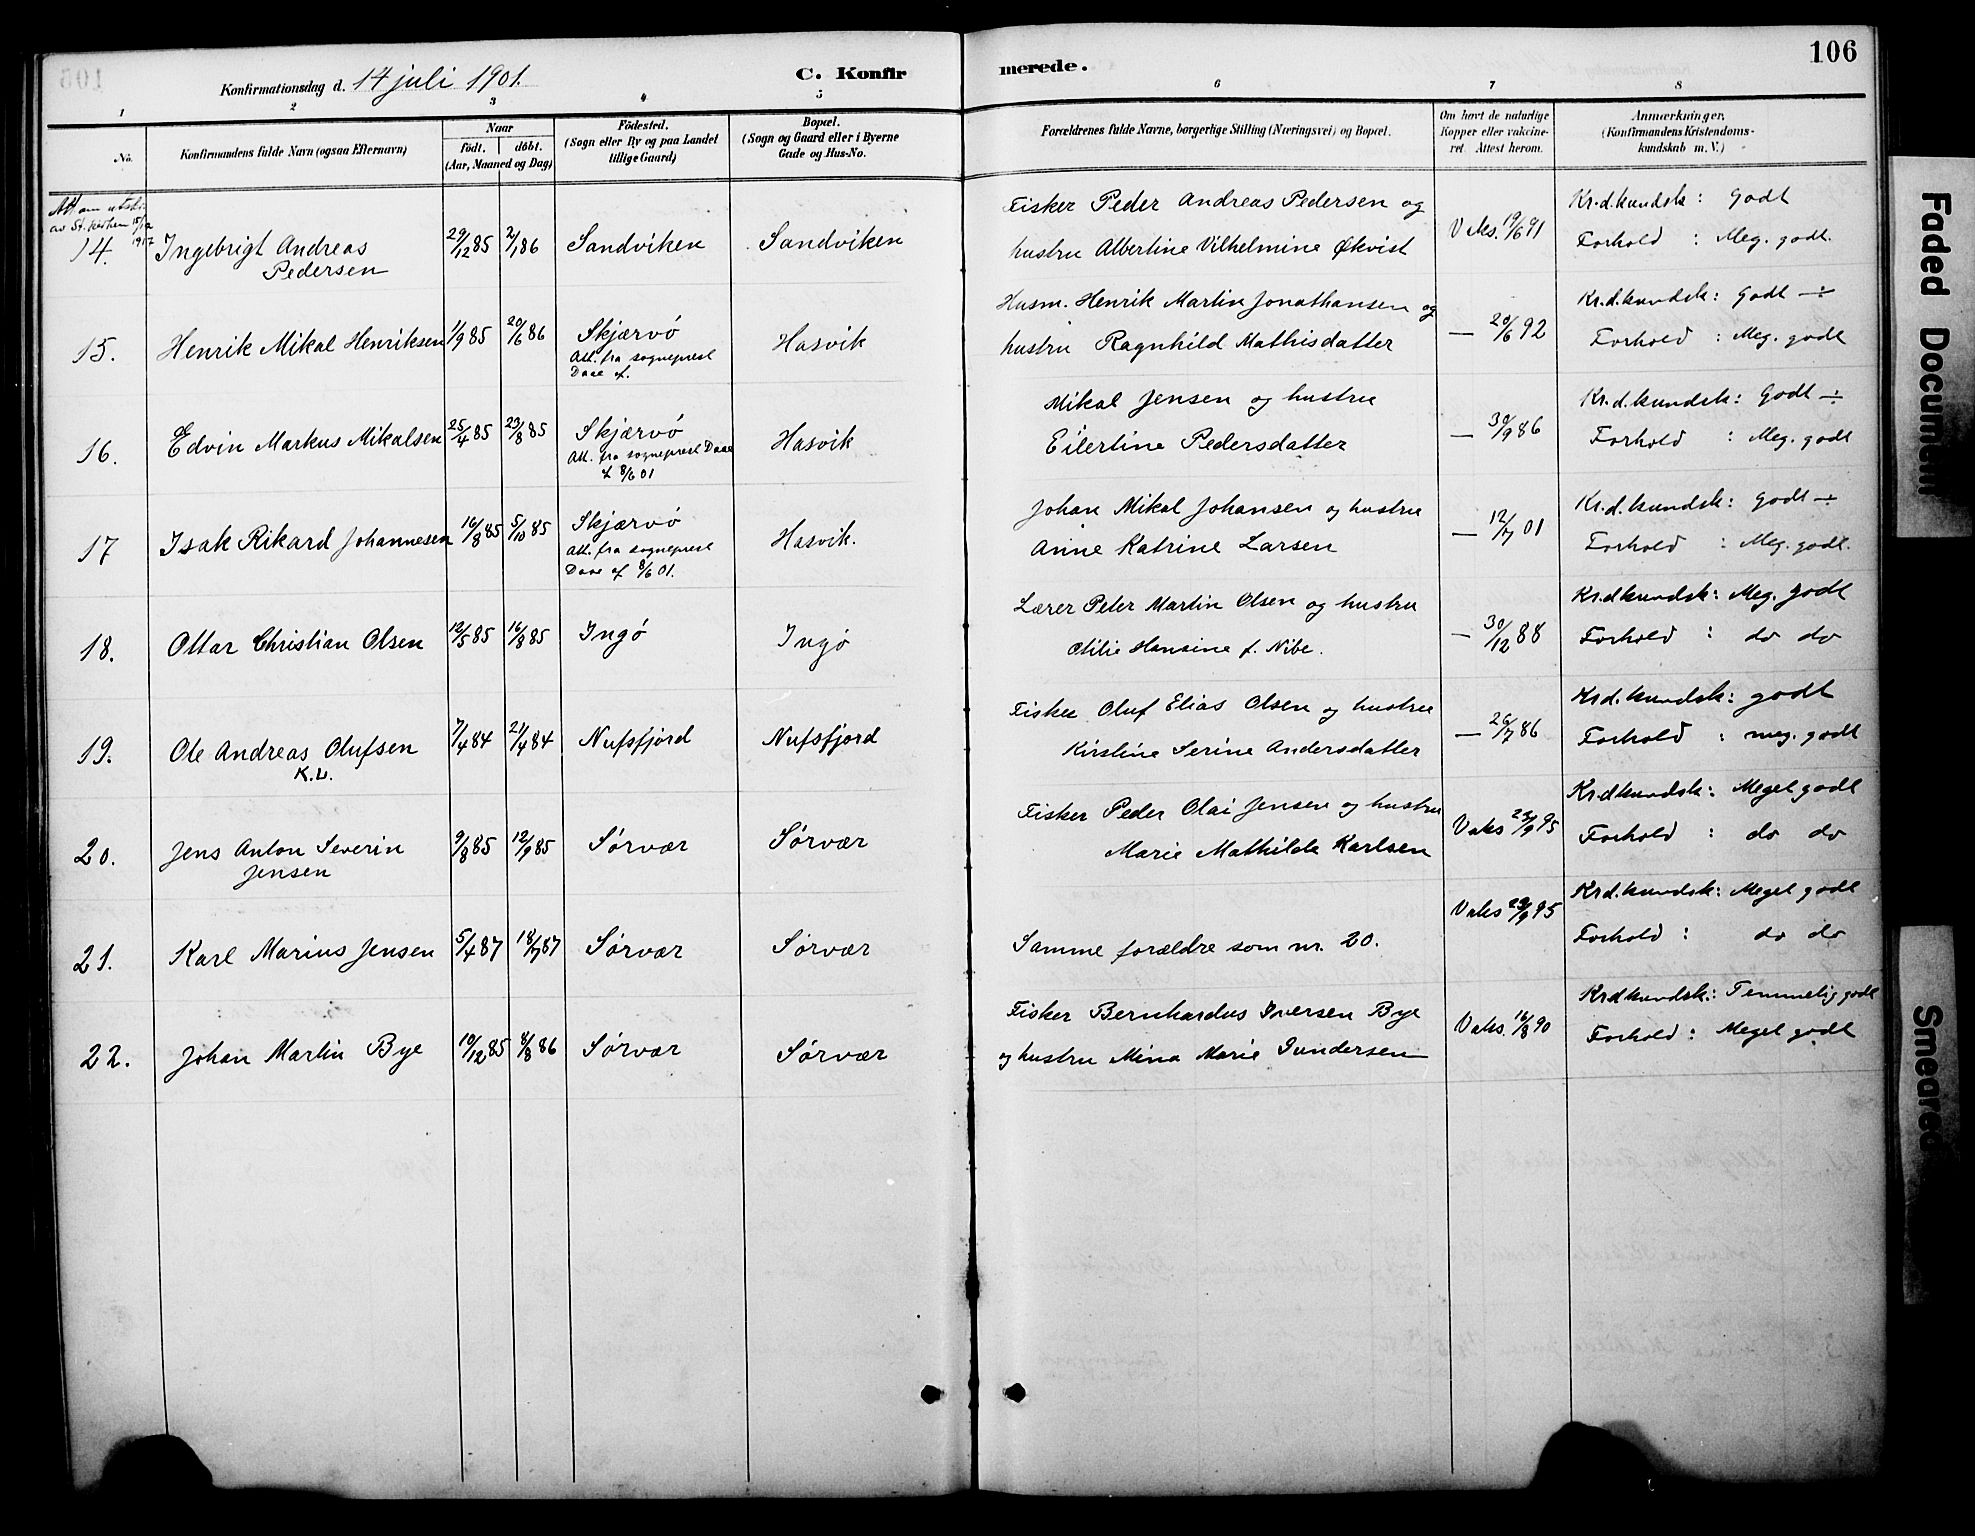 106
Konfirmationsdag d. 14 juli 1901. C. Konfirmerede.
1 2 3 4 5 6 7 8
No.
Konfirmandens fulde Navn (ogsaa Efternavn)
Naar
födt. döbt.
(Aar, Maaned og Dag)
Födested.
(Sogn eller By og paa Landet
tillige Gaard)
Bopæl.
(Sogn og Gaard eller i Byerne
Gade og Hus-No.
Forældrenes fulde Navne, borgerlige Stilling (Næringsvei) og Bopæl.
Om havt de naturlige
Kopper eller vakcine-
ret. Attest herom.
Anmærkninger.
(Konfirmandens Kristendoms-
kundskab m. V.)
Att om utst.
av St. kirken 15/12
1917
14. Ingebrigt Andreas 29/12 85 2/1 86 Sandviken Sandviken Fisker Peder Andreas Pedersen og Vaks. 19/6 91 Kr.d.kundsk: Godt
Pedersen hustru Albertine Vilhelmine Økvist Forhold : Meg. godt.
15. Henrik Mikal Henriksen 1/9 85 20/6 86 Skjærvö Hasvik Husm. Henrik Martin Jonathansen og — 20/6 92 Kr.d.kundsk: Godt ÷
Att. fra sogneprest
Daae af.
hustru Ragnhild Mathisdatter Forhold : Meg. godt
16. Edvin Markus Mikalsen 25/4 85 23/8 85 Skjærvö Hasvik Mikal Jensen og hustru — 30/9 86 Kr.d.kundsk: Godt ÷
Att. fra sogneprest Daae
af 8/6 01
Eilertine Pedersdatter Forhold : Meg. godt
17 Isak Rikard Johannesen 16/8 85 5/10 85 Skjærvö Hasvik. Johan Mikal Johansen og hustru — 12/7 01 Kr.d.kundsk: godt ÷
Att. fra sogneprest
Daae af 8/6 01.
Anne Katrine Larsen Forhold : Meg. godt.
18. Ottar Christian Olsen 12/5 85 16/8 85 Ingö Ingö Lærer Peter Martin Olsen og hustru — 30/12 88 Kr.dkundsk: Meg. godt
Otilie Hansine f. Nibe. Forhold : do do
19. Ole Andreas Olufsen 7/4 84 21/4 84 Nufsfjord Nufsfjord Fisker Oluf Elias Olsen og hustru — 26/7 86 Kr.d.kundsk: godt
K.L. Kirstine Serine Andersdatter Forhold : meg. godt
20. Jens Anton Severin 9/8 85 12/9 85 Sørvær Sørvær Fisker Peder Olai Jensen og hustru Vaks 23/9 95 Kr.dkundsk: Meget godt
Jensen Marie Mathilde Karlsen Forhold : do do
21. Karl Marius Jensen 5/4 87 18/7 87 Sørvær Sørvær Samme forældre som nr. 20. Vaks 23/9 95 Kr.d.kundsk: Meget godt
Forhold : do do
22. Johan Martin Bye 10/12 85 8/8 86 Sørvær Sørvær Fisker Bernhardus Iversen Bye Vaks. 16/8 90 Kr.dkundsk.: Temmelig godt
og hustru Mina Marie Gundersen Forhold : Meget godt
Faded Document
Smeared